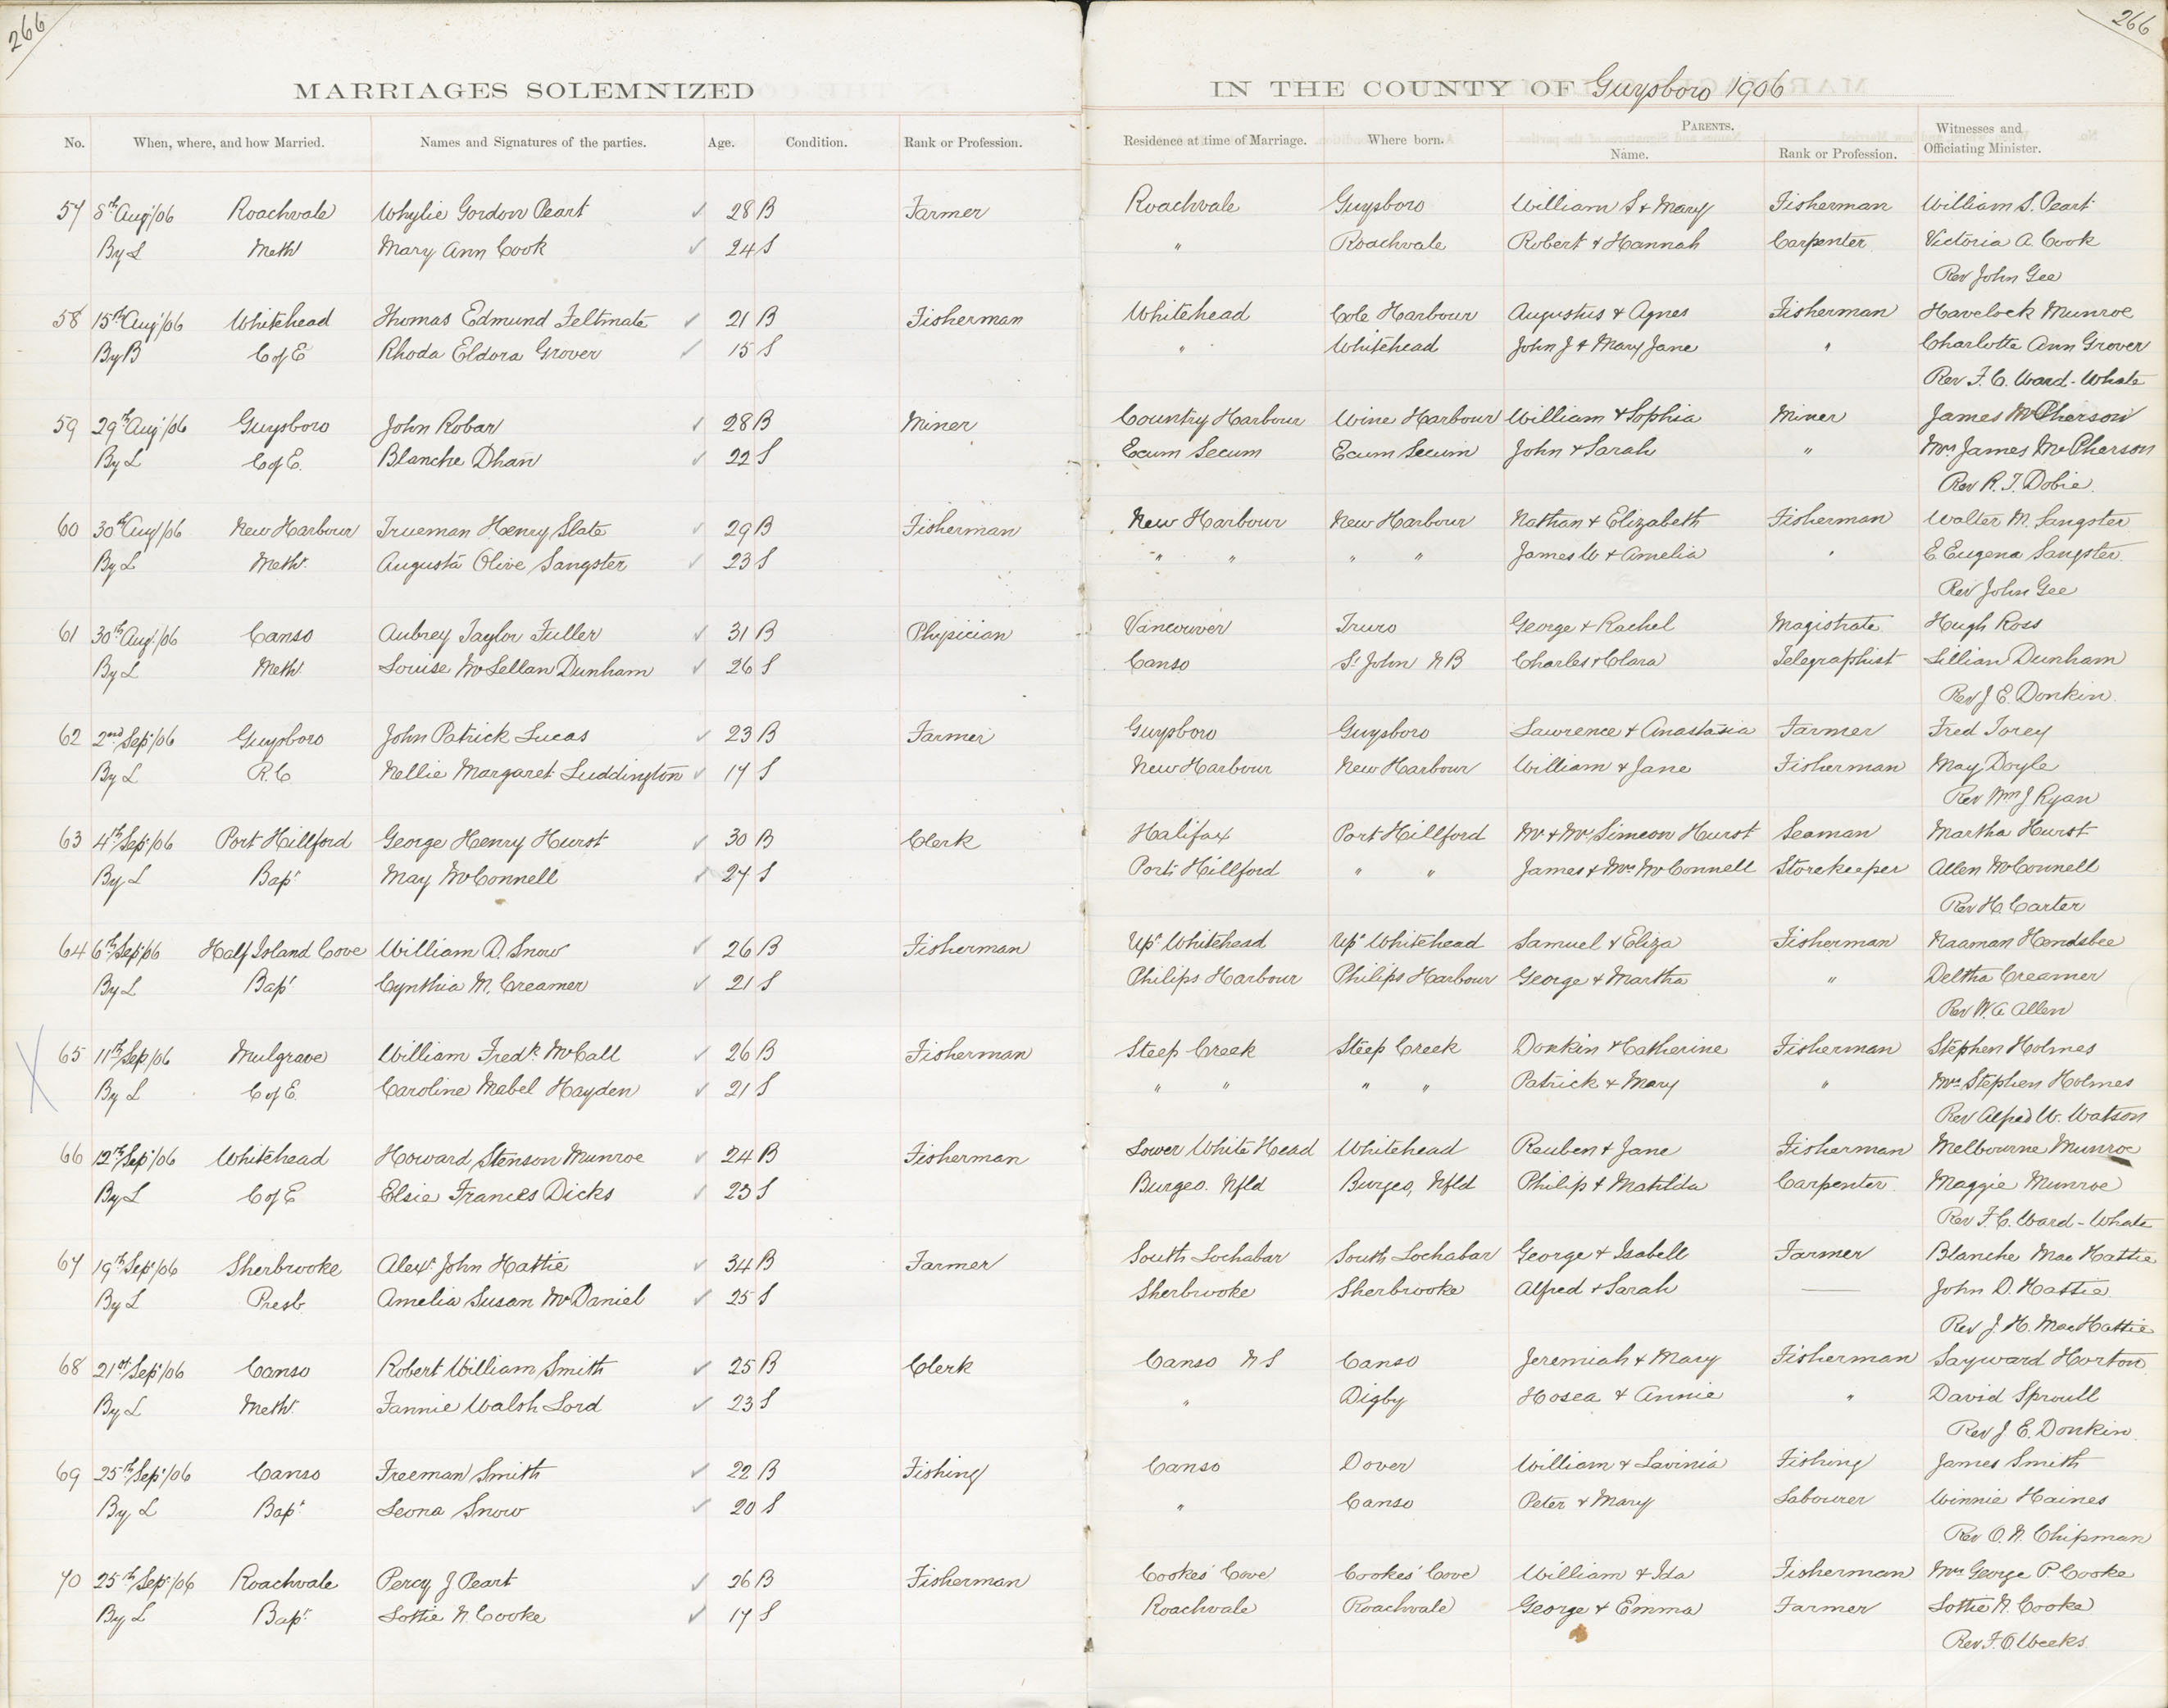 266
266
MARRIAGES SOLEMNIZED
IN THE COUNTY OF Guysboro 1906
No. When, where, and how Married. Names and Signatures of the parties. Age. Condition. Rank or Profession. Residence at time of Marriage. Where born. PARENTS. Name. Rank or Profession. Witnesses and Officiating Minister.
57 8th Aug'/06 Roachvale Whylie Gordon Peart 28 B Farmer Roachvale Guysboro William S & Mary Fisherman William S. Peart
By L Meth' Mary Ann Cook 24 S " Roachvale Robert & Hannah Carpenter Victoria A. Cook
Rev John Gee
58 15th Aug'/06 Whitehead Thomas Edmund Feltmate 21 B Fisherman Whitehead Cole Harbour Augustus & Agnes Fisherman Havelock Munroe
By B C of E Rhoda Eldora Grover 15 S " Whitehead John J & Mary Jane " Charlotte Ann Grover
Rev F. C. Ward-Whate
59 29th Aug'/06 Guysboro John Robar 28 B Miner Country Harbour Wine Harbour William & Sophia Miner James McPherson
By L C of E. Blanche Dhan 22 S Ecum Secum Ecum Secum John & Sarah " Mrs James McPherson
Rev R. T. Dobie.
60 30th Aug/06 New Harbour Trueman Henry Slate 29 B Fisherman New Harbour New Harbour Nathan & Elizabeth Fisherman Walter M. Sangster
By L Meth'. Augusta Olive Sangster 23 S " " " " James W & Amelia " E Eugena Sangster.
Rev John Gee
61 30th Aug'/06 Canso Aubrey Taylor Fuller 31 B Physician Vancouver Truro George & Rachel Magistrate Hugh Ross
By L Meth'. Louise McLellan Dunham 26 S Canso St John N B Charles & Clara Telegraphist Lillian Dunham
Rev J E. Donkin.
62 2nd Sep'/06 Guysboro John Patrick Lucas 23 B Farmer Guysboro Guysboro Lawrence & Anastasia Farmer Fred Torey
By L R. C Nellie Margaret Luddington 17 S New Harbour New Harbour William & Jane Fisherman May Doyle
Rev Wm J Ryan
63 4th Sep'/06 Port Hillford George Henry Hurst 30 B Clerk Halifax Port Hillford Mr & Mrs Simeon Hurst Seaman Martha Hurst
By L Bap' May McConnell 27 S Port Hillford " " James & Mrs McConnell Storekeeper Allen McConnell
Rev H. Carter
64 6th Sep'/06 Half Island Cove William D. Snow 26 B Fisherman Upr Whitehead Upr Whitehead Samuel & Eliza Fisherman Naaman Hendsbee
By L Bap' Cynthia M. Creamer 21 S Philips Harbour Philips Harbour George & Martha " Deltha Creamer
Rev W. A Allen
65 11th Sep/06 Mulgrave William Fredk McCall 26 B Fisherman Steep Creek Steep Creek Donkin & Catherine Fisherman Stephen Holmes
By L C of E. Caroline Mabel Hayden 21 S " " " " Patrick & Mary " Mrs Stephen Holmes
Rev Alfred W. Watson
66 12th Sep'/06 Whitehead Howard Stenson Munroe 24 B Fisherman Lower White Head Whitehead Reuben & Jane Fisherman Melbourne Munroe
By L C of E Elsie Frances Dicks 23 S Burgeo. Nfld Burgeo, Nfld Philip & Matilda Carpenter. Maggie Munroe
Rev F. C. Ward-Whate
67 19th Sep'/06 Sherbrooke Alexr John Hattie 34 B Farmer South Lochabar South Lochabar George & Isabell Farmer Blanche MacHattie
By L Presb. Amelia Susan McDaniel 25 S Sherbrooke Sherbrooke Alfred & Sarah — John D. Hattie
Rev J. H. MacHattie
68 21st Sep'/06 Canso Robert William Smith 25 B Clerk Canso N S Canso Jeremiah & Mary Fisherman Sayward Horton
By L Meth'. Fannie Walsh Lord 23 S " Digby Hosea & Annie " David Sproull
Rev J E. Donkin.
69 25th Sep'/06 Canso Freeman Smith 22 B Fishing Canso Dover William & Lavinia Fishing James Smith
By L Bap' Leona Snow 20 S " Canso Peter & Mary Labourer Winnie Haines
Rev O. N. Chipman
70 25th Sep'/06 Roachvale Percy J Peart 26 B Fisherman Cookes' Cove Cookes' Cove William & Ida Fisherman Mrs George P Cooke
By L Bap' Lottie N. Cooke 17 S Roachvale Roachvale George & Emma Farmer Lottie N. Cooke
Rev F. O. Weeks.